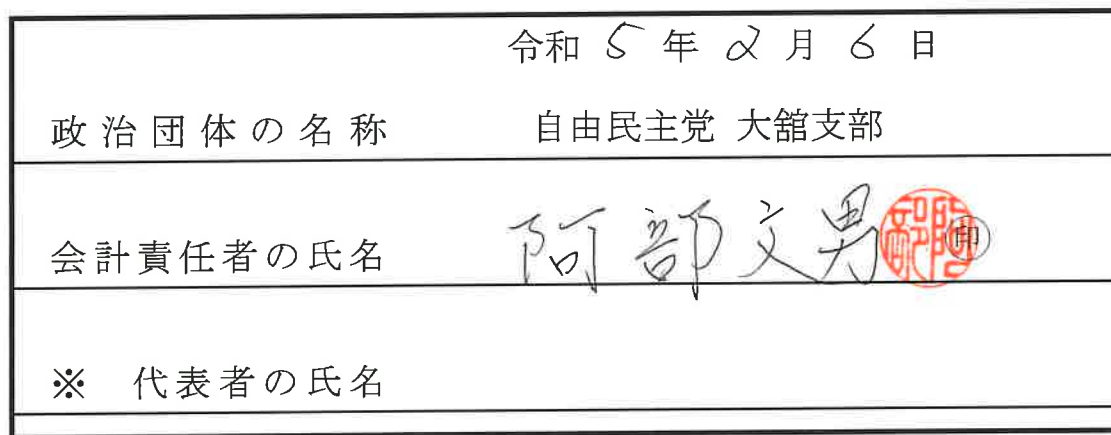 令和 5 年 2 月 6 日
政治団体の名称 自由民主党 大舘支部
会計責任者の氏名 阿部文男 阿部 印
※ 代表者の氏名